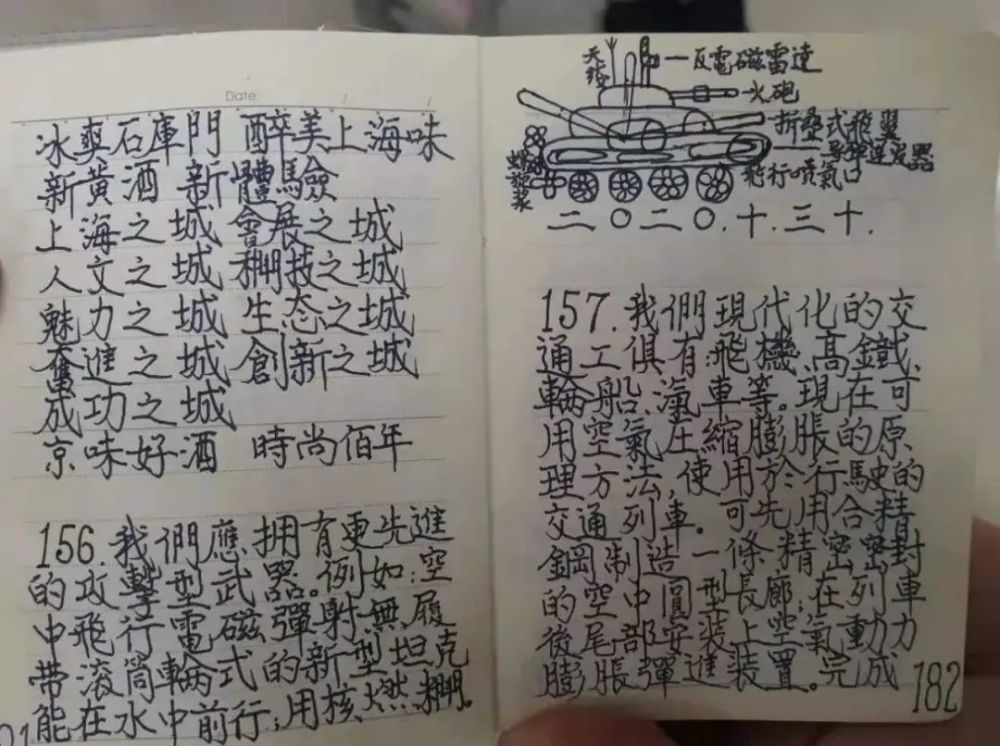 Date: / /
冰爽石庫門 醉美上海味
新黃酒 新體驗
上海之城 會展之城
人文之城 科技之城
魅力之城 生态之城
奮進之城 創新之城
成功之城
京味好酒 時尚佰年
156. 我們應拥有更先進
的攻擊型武器。例如:空
中飛行電磁彈射無履
带滚筒輪式的新型坦克
能在水中前行;用核燃料。
天线
反電磁雷達
火砲
折叠式飛翼
導彈連发器
飛行喷氣口
螺旋浆
二〇二〇.十.三十.
157. 我們現代化的交
通工俱有飛機、高鐵、
輪船、氣車等。現在可
用空氣压縮膨脹的原
理方法,使用於行駛的
交通列車。可先用合精
鋼制造一條精密密封
的空中圓型長廊;在列車
後尾部安装上空氣動力
膨脹彈進装置。完成
182